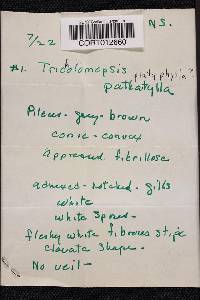 7/22
N.S.
CORT012660
#1. Tricholomopsis
platyphylla?
Pileus - grey-brown
conic - convex
appressed fibrillose
adnexed - notched - gills
white
white spores -
fleshy white fibrous stipe
clavate shape -
No veil -